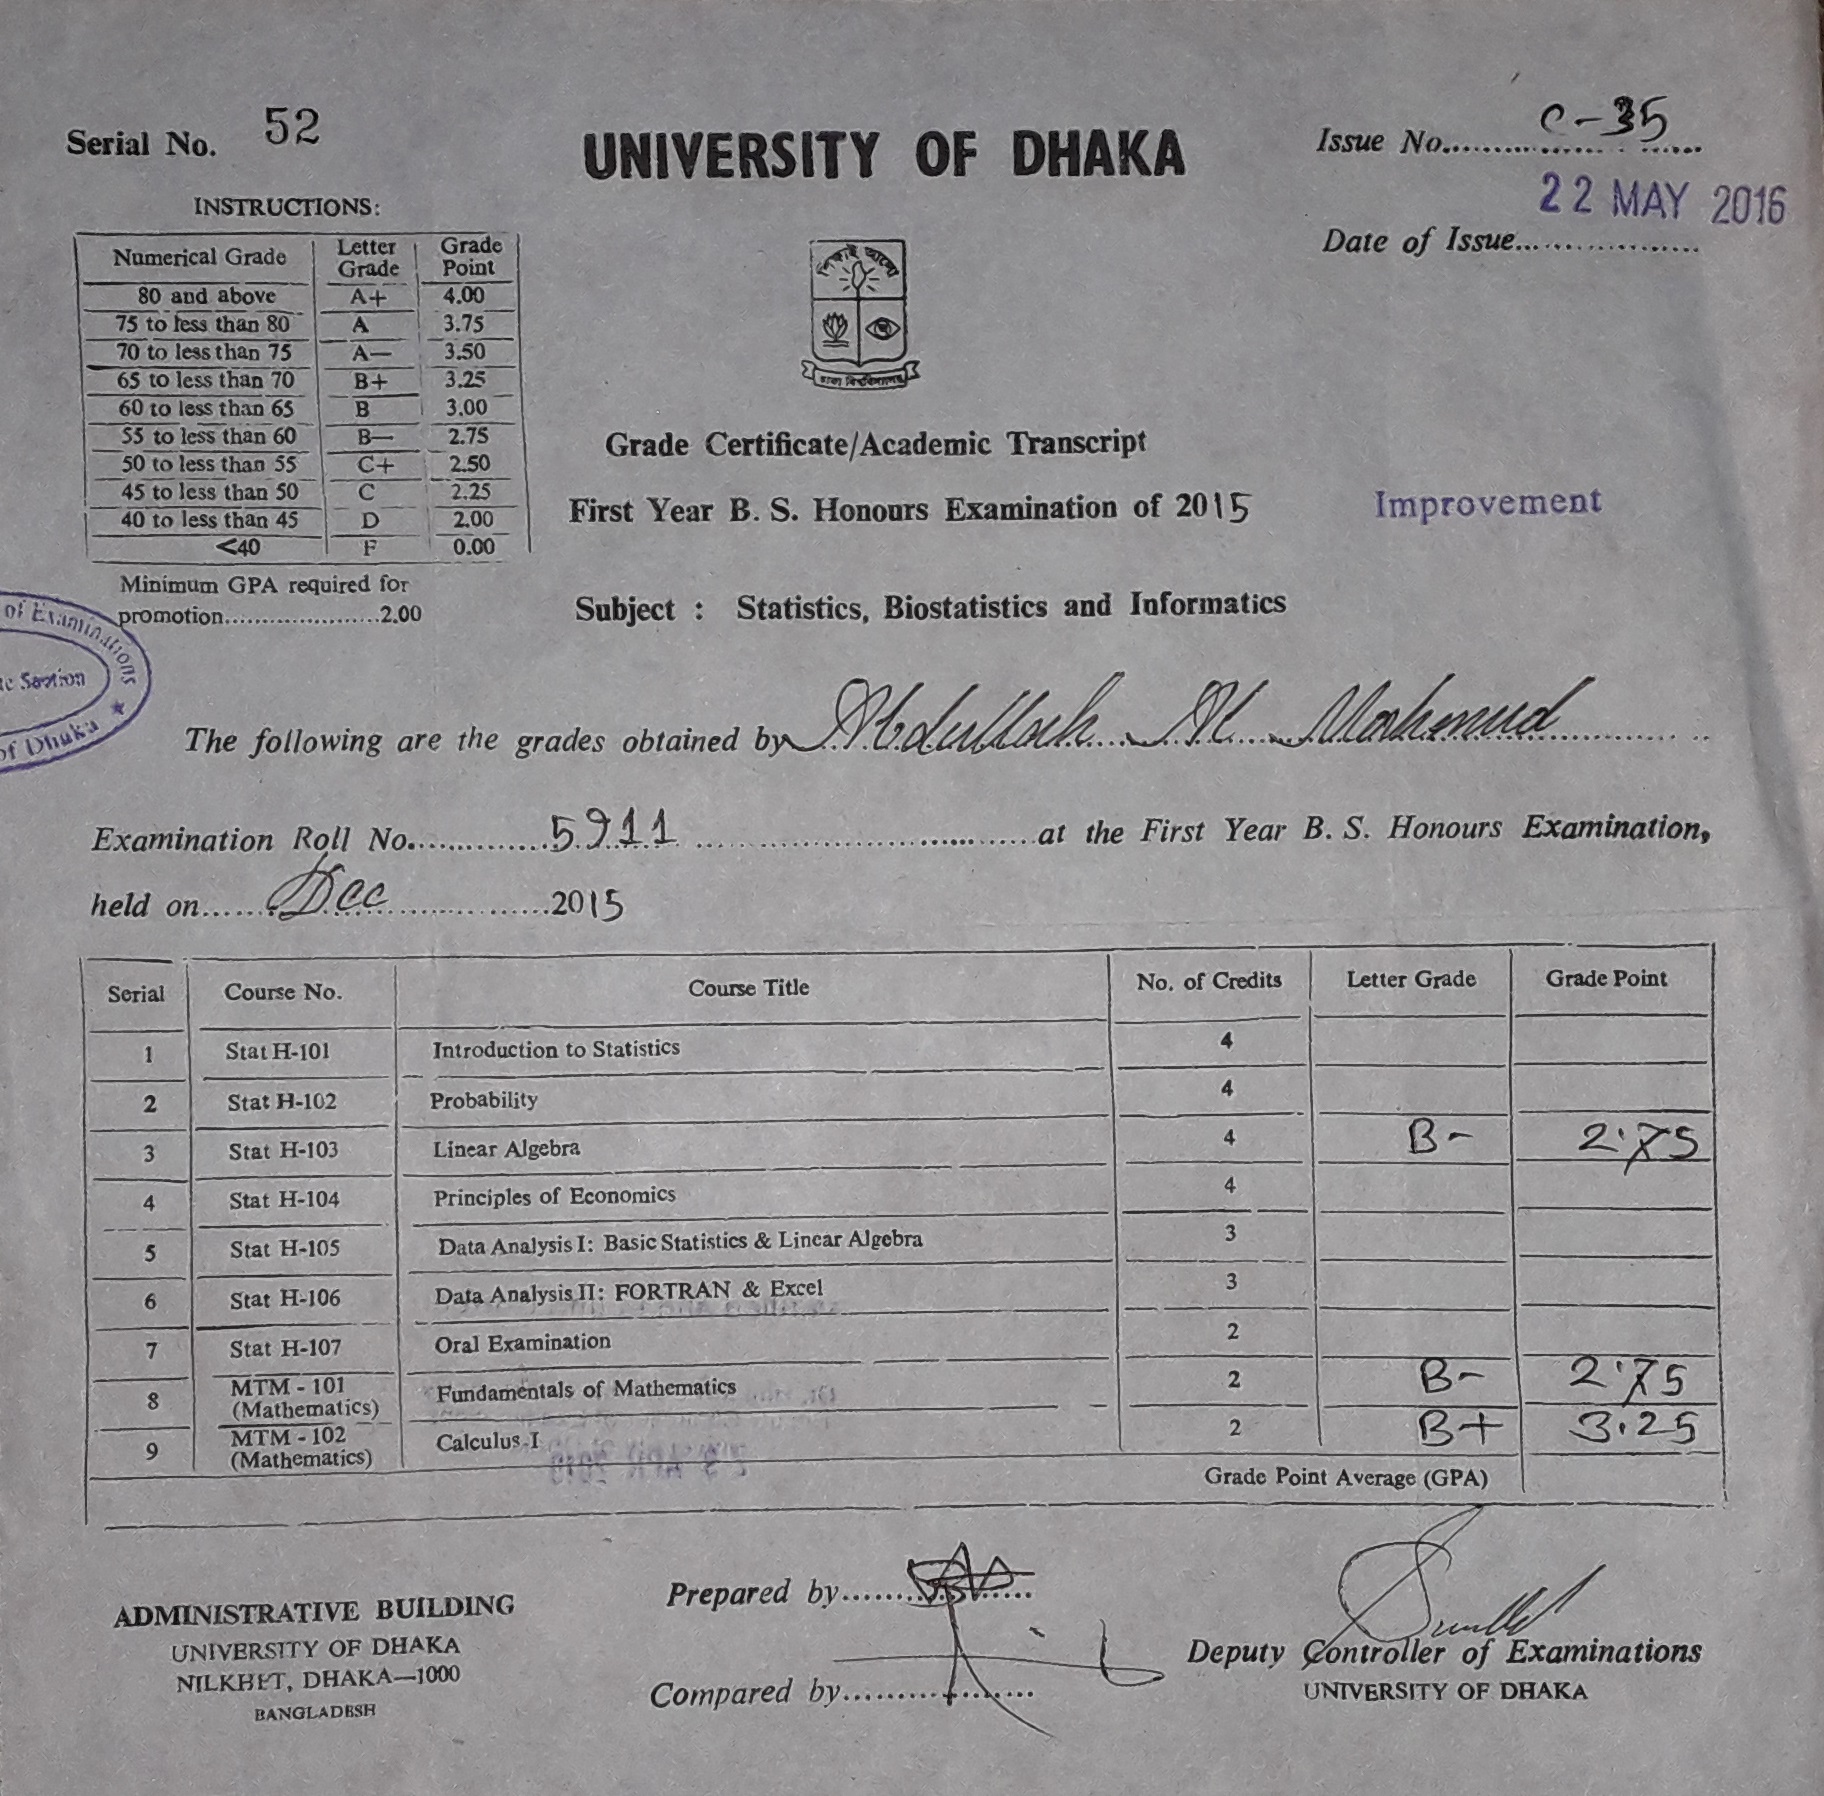 Serial No. 52
UNIVERSITY OF DHAKA
Issue No.......... C-35
22 MAY 2016
Date of Issue..................
INSTRUCTIONS:
Numerical Grade Letter Grade Grade Point
80 and above A+ 4.00
75 to less than 80 A 3.75
70 to less than 75 A— 3.50
65 to less than 70 B+ 3.25
60 to less than 65 B 3.00
55 to less than 60 B— 2.75
50 to less than 55 C+ 2.50
45 to less than 50 C 2.25
40 to less than 45 D 2.00
<40 F 0.00
Minimum GPA required for
promotion.....................2.00
শিক্ষাই আলো
ঢাকা বিশ্ববিদ্যালয়
Grade Certificate/Academic Transcript
First Year B. S. Honours Examination of 2015 Improvement
Subject : Statistics, Biostatistics and Informatics
of Examinations
Section
of Dhaka
The following are the grades obtained by Abdullah Al Mahmud
Examination Roll No. 5911 at the First Year B. S. Honours Examination,
held on Dec 2015
Serial Course No. Course Title No. of Credits Letter Grade Grade Point
1 Stat H-101 Introduction to Statistics 4
2 Stat H-102 Probability 4
3 Stat H-103 Linear Algebra 4 B- 2.75
4 Stat H-104 Principles of Economics 4
5 Stat H-105 Data Analysis I: Basic Statistics & Linear Algebra 3
6 Stat H-106 Data Analysis II: FORTRAN & Excel 3
7 Stat H-107 Oral Examination 2
8 MTM - 101 (Mathematics) Fundamentals of Mathematics 2 B- 2.75
9 MTM - 102 (Mathematics) Calculus-I 2 B+ 3.25
Grade Point Average (GPA)
ADMINISTRATIVE BUILDING
UNIVERSITY OF DHAKA
NILKHET, DHAKA—1000
BANGLADESH
Prepared by
Compared by
Deputy Controller of Examinations
UNIVERSITY OF DHAKA